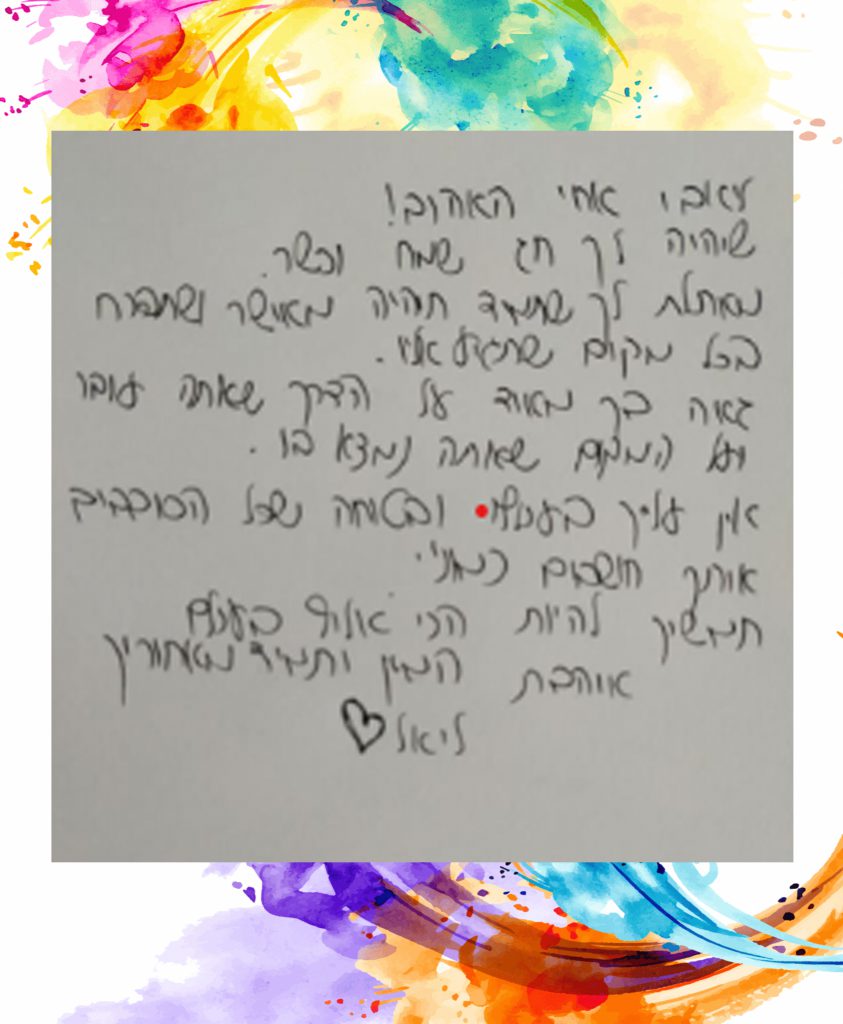 אחי האהוב!
שיהיה לך חג שמח וכשר.
מאחלת לך שתמיד תהיה מאושר ושתפרח
בכל מקום שתגיע אליו.
גאה בך מאוד על הדרך שאתה עובר
ועל המקום שאתה נמצא בו.
אין עליך בעולם ובטוחה שכל הסובבים
אותך חושבים כמוני.
תמשיך להיות הכי אלוף בעולם
אוהבת המון ותמיד מאחוריך
ליאל